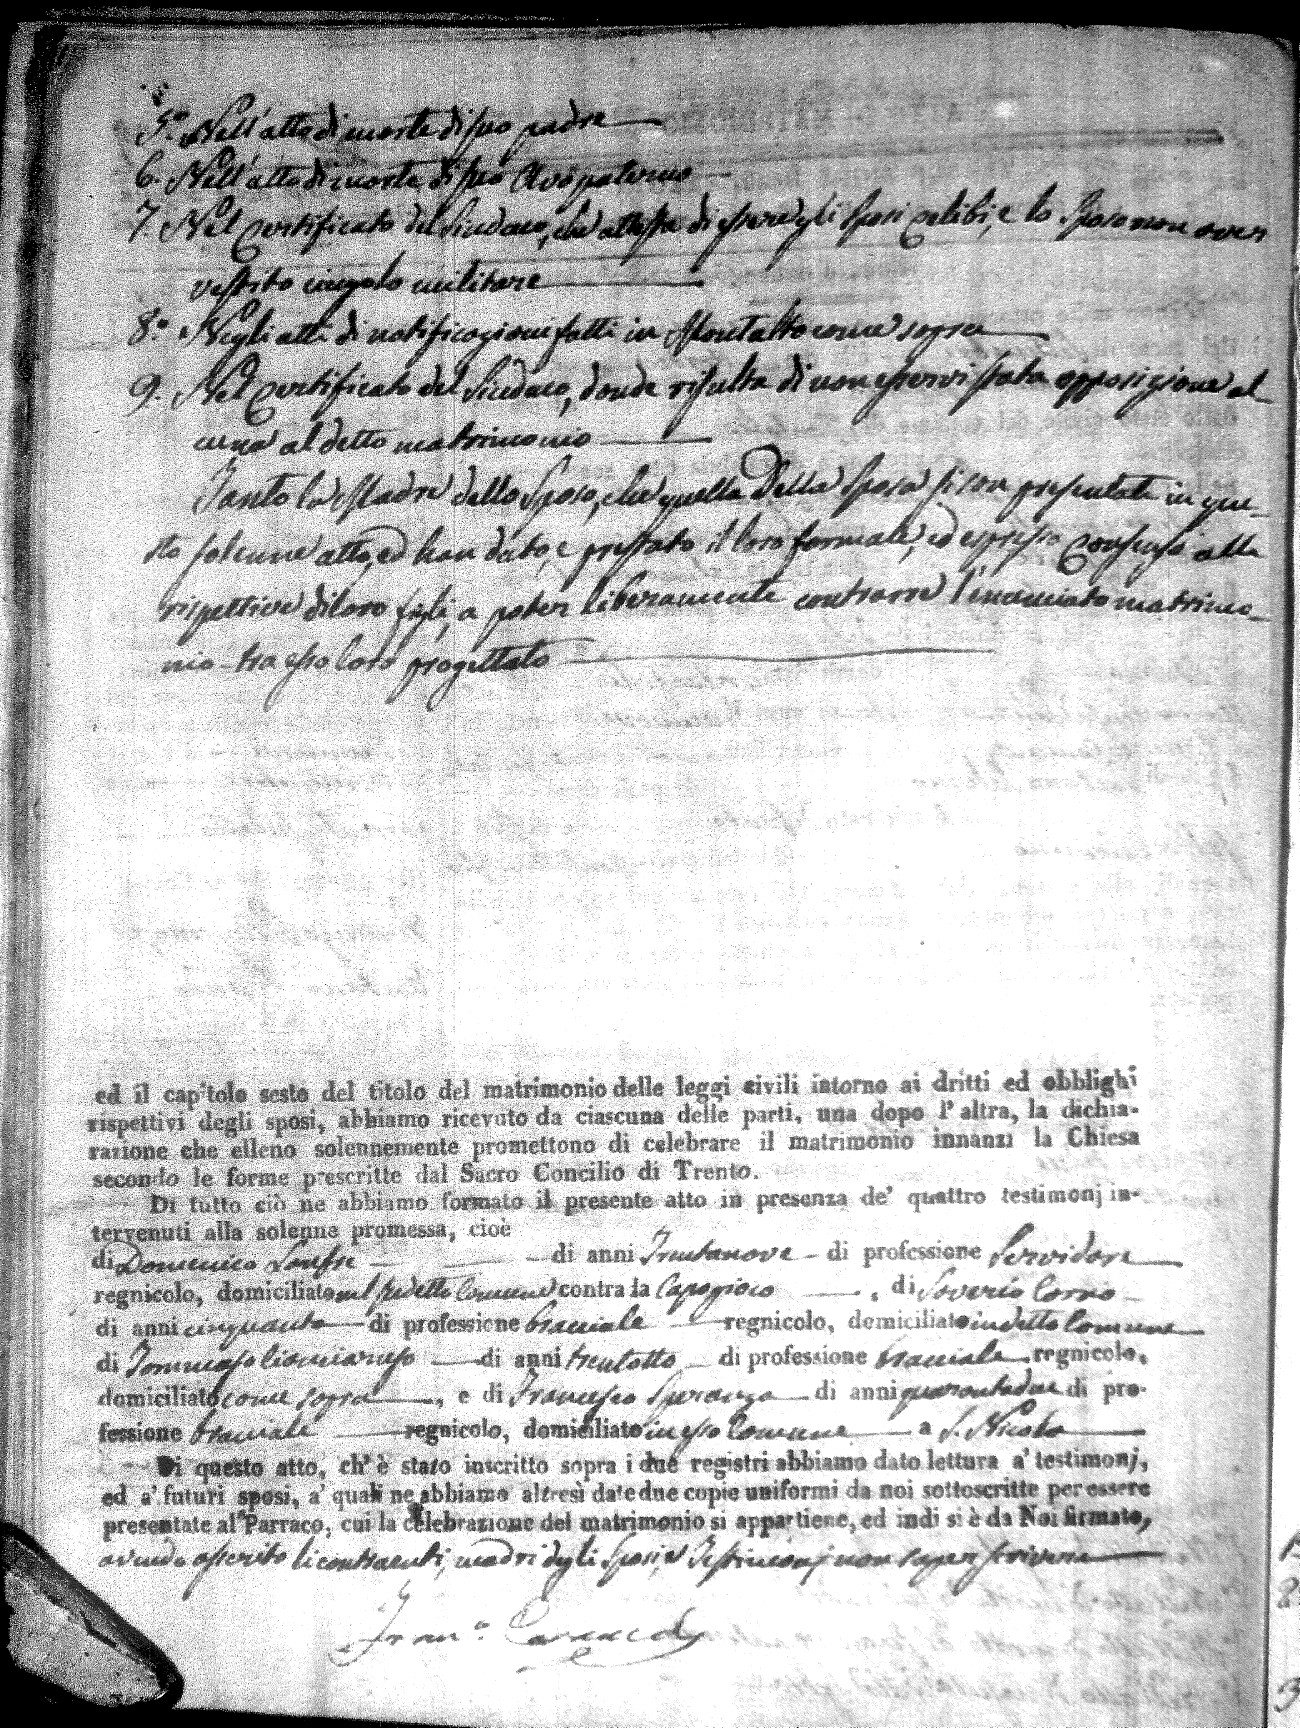 5.° Nell'atto di morte di suo padre
6. Nell'atto di morte di suo Avo paterno
7. Nel Certificato del Sindaco, che attesta di essere gli sposi celibi, e lo Sposo non aver
vestito cingolo militare
8.° Negli atti di notificazioni fatti in come sopra
9. Nel Certificato del Sindaco, donde risulta di non esservi stata opposizione al
cuna al detto matrimonio
Tanto la Madre dello Sposo, che quella della Sposa si son presentate in que-
sto solenne atto, ed han dato, e prestato il loro formale, ed espresso Consenso alli
rispettivi di loro figli, a poter liberamente contrarre l'enunciato matrimo-
nio tra esso loro progettato
ed il capitolo sesto del titolo del matrimonio delle leggi civili intorno ai dritti ed obblighi
rispettivi degli sposi, abbiamo ricevuto da ciascuna delle parti, una dopo l'altra, la dichia-
razione che elleno solennemente promettono di celebrare il matrimonio innanzi la Chiesa
secondo le forme prescritte dal Sacro Concilio di Trento.
Di tutto ciò ne abbiamo formato il presente atto in presenza de' quattro testimonj in-
tervenuti alla solenne promessa, cioè
di Domenico di anni Trentanove di professione Servidore
regnicolo, domiciliato nel suddetto Comune contra la Capogioco, di Saverio Corvo
di anni cinquanta di professione bracciale regnicolo, domiciliato in detto Comune
di Tommaso di anni trentotto di professione bracciale regnicolo,
domiciliato come sopra, e di Francesco Speranza di anni quarantadue di pro-
fessione bracciale regnicolo, domiciliato in esso Comune a S. Nicola
Di questo atto, ch'è stato inscritto sopra i due registri abbiamo dato lettura a' testimonj,
ed a' futuri sposi, a' quali ne abbiamo altresì date due copie uniformi da noi sottoscritte per essere
presentate al Parroco, cui la celebrazione del matrimonio si appartiene, ed indi si è da Noi firmato,
avendo asserito li contraenti, madri degli Sposi, e Testimonj non saper scrivere
Fran.°